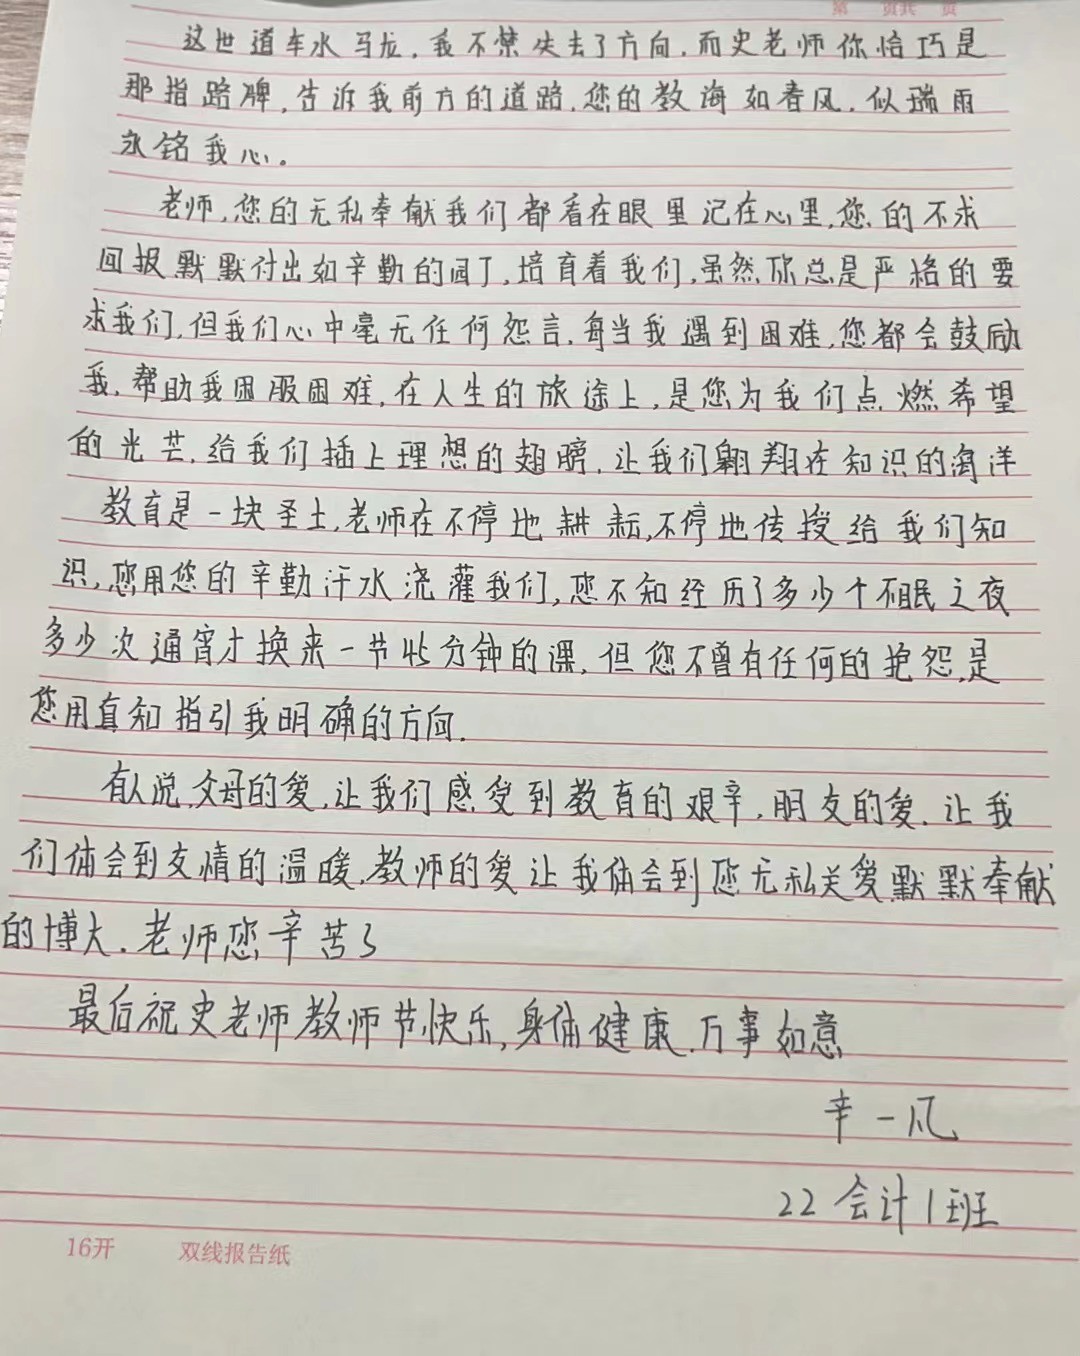 第 页共 页
这世道车水马龙,我不禁失去了方向.而史老师你恰巧是
那指路牌,告诉我前方的道路.您的教诲如春风.似瑞雨
永铭我心。
老师,您的无私奉献我们都看在眼里记在心里,您的不求
回报默默付出如辛勤的园丁,培育着我们,虽然你总是严格的要
求我们,但我们心中毫无任何怨言.每当我遇到困难,您都会鼓励
我,帮助我困服困难,在人生的旅途上,是您为我们点燃希望
的光芒.给我们插上理想的翅膀.让我们翱翔在知识的海洋
教育是一块圣土,老师在不停地耕耘,不停地传授给我们知
识,您用您的辛勤汗水浇灌我们,您不知经历了多少个不眠之夜
多少次通宵才换来一节45分钟的课,但您不曾有任何的抱怨,是
您用真知指引我明确的方向.
有人说,父母的爱,让我们感受到教育的艰辛,朋友的爱.让我
们体会到友情的温暖,教师的爱让我体会到您无私关爱默默奉献
的博大.老师您辛苦了
最后祝史老师教师节快乐,身体健康.万事如意
辛一凡
22会计1班
16开 双线报告纸